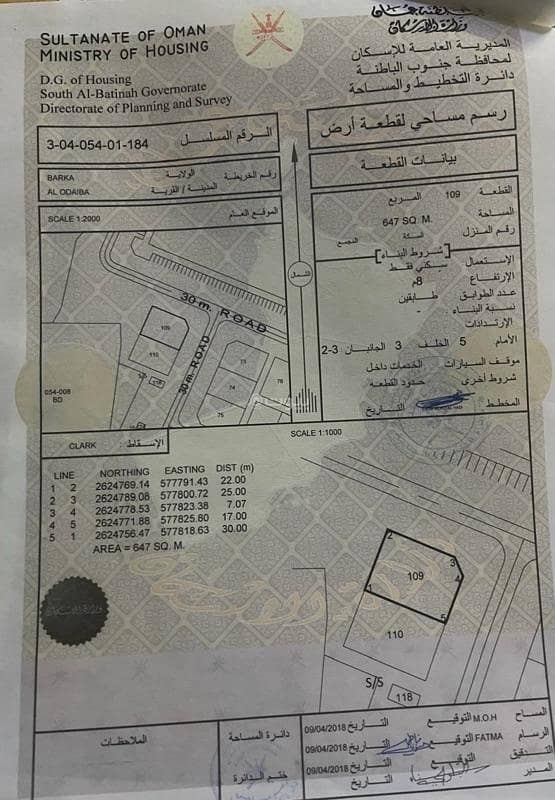 SULTANATE OF OMAN
MINISTRY OF HOUSING
D.G. of Housing
South Al-Batinah Governorate
Directorate of Planning and Survey
وزارة الإسكان
المديرية العامة للإسكان
لمحافظة جنوب الباطنة
دائرة التخطيط والمساحة
3-04-054-01-184 الرقم المسلسل
رسم مساحي لقطعة أرض
BARKA الولاية رقم الخريطة
AL ODAIBA المدينة / القرية
بيانات القطعة
SCALE 1:2000 الموقع العام
القطعة 109 المربع
المساحة 647 SQ. M.
رقم المنزل السكة المجمع
[شروط البناء]
الإستعمال سكني فقط
الإرتفاع 8م
عدد الطوابق طابقين
نسبة البناء -
الإرتدادات
الأمام 5 الخلف 3 الجانبان 3-2
موقف السيارات الخدمات داخل
شروط أخرى حدود القطعه
المخطط التاريخ
الشمال
30 m. ROAD
30 m. ROAD
109
110
118
73
74
75
76
054-008
BD
CLARK الإسقاط :
SCALE 1:1000
LINE NORTHING EASTING DIST (m)
1 2 2624769.14 577791.43 22.00
2 3 2624789.08 577800.72 25.00
3 4 2624778.53 577823.38 7.07
4 5 2624771.88 577825.80 17.00
5 1 2624756.47 577818.63 30.00
AREA = 647 SQ. M.
2
3
4
109
1
5
110
S/S
118
الملاحظات
دائرة المساحة
ختم الدائرة
المساح M.O.H التوقيع التاريخ 09/04/2018
الرسام FATMA التوقيع التاريخ 09/04/2018
التدقيق التوقيع التاريخ 09/04/2018
المدير التوقيع التاريخ